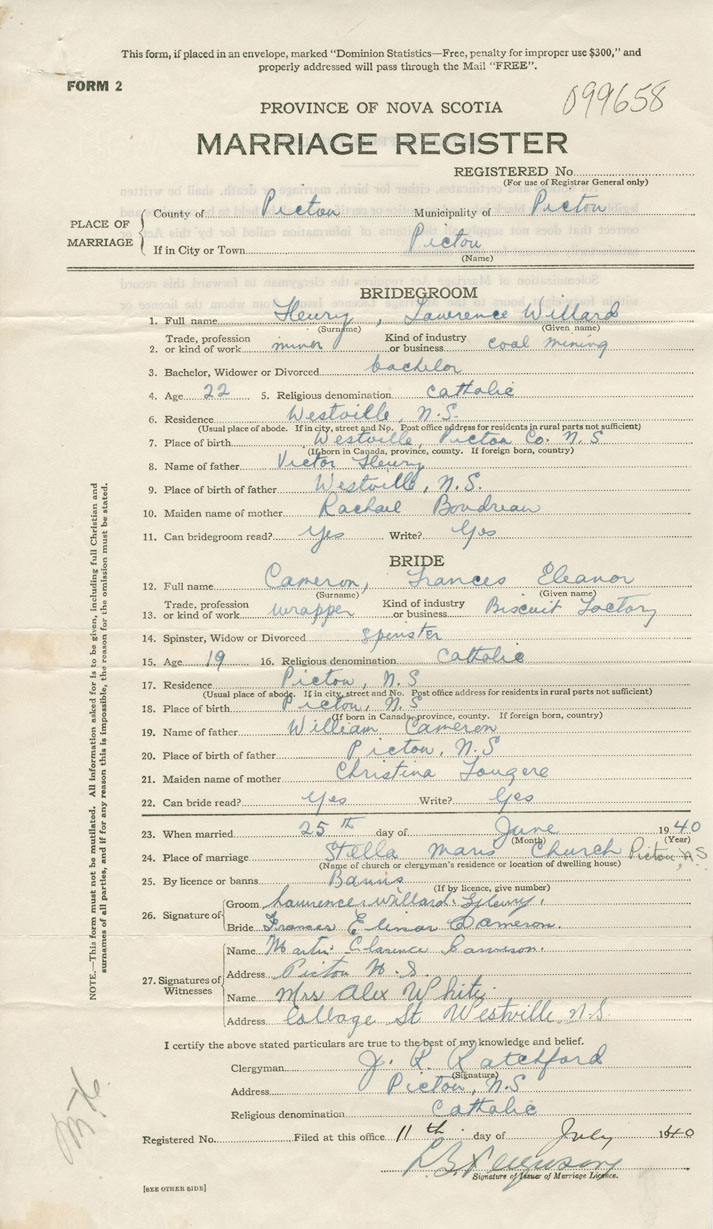 This form, if placed in an envelope, marked "Dominion Statistics—Free, penalty for improper use $300," and
properly addressed will pass through the Mail "FREE".
FORM 2
099658
PROVINCE OF NOVA SCOTIA
MARRIAGE REGISTER
REGISTERED No.
(For use of Registrar General only)
PLACE OF MARRIAGE
County of Pictou Municipality of Pictou
If in City or Town Pictou
(Name)
BRIDEGROOM
1. Full name Fleury, Lawrence Willard
(Surname) (Given name)
2. Trade, profession or kind of work miner Kind of industry or business coal mining
3. Bachelor, Widower or Divorced bachelor
4. Age 22 5. Religious denomination Catholic
6. Residence Westville, N.S.
(Usual place of abode. If in city, street and No. Post office address for residents in rural parts not sufficient)
7. Place of birth Westville, Pictou Co. N.S
(If born in Canada, province, county. If foreign born, country)
8. Name of father Victor Fleury
9. Place of birth of father Westville, N.S.
10. Maiden name of mother Rachael Boudreau
11. Can bridegroom read? Yes Write? Yes
BRIDE
12. Full name Cameron, Frances Eleanor
(Surname) (Given name)
13. Trade, profession or kind of work wrapper Kind of industry or business Biscuit Factory
14. Spinster, Widow or Divorced spinster
15. Age 19 16. Religious denomination Catholic
17. Residence Pictou, N.S
(Usual place of abode. If in city, street and No. Post office address for residents in rural parts not sufficient)
18. Place of birth Pictou, N.S
(If born in Canada, province, county. If foreign born, country)
19. Name of father William Cameron
20. Place of birth of father Pictou, N.S
21. Maiden name of mother Christina Fougere
22. Can bride read? Yes Write? Yes
23. When married 25th day of June 1940
(Month) (Year)
24. Place of marriage Stella Maris Church Pictou, N S
(Name of church or clergyman's residence or location of dwelling house)
25. By licence or banns Banns
(If by licence, give number)
26. Signature of
Groom Lawrence Willard Fleury.
Bride Frances Elinor Cameron.
27. Signatures of Witnesses
Name Martin Clarence Cameron.
Address Pictou N.S.
Name Mrs Alex White.
Address Collage St Westville, N.S.
I certify the above stated particulars are true to the best of my knowledge and belief.
Clergyman J. R. Ratchford
(Signature)
Address Pictou, N.S
Religious denomination Catholic
Registered No. Filed at this office 11th. day of July 1940
Ferguson
Signature of Issuer of Marriage Licence.
[SEE OTHER SIDE]
NOTE.—This form must not be mutilated. All information asked for is to be given, including full Christian and
surnames of all parties, and if for any reason this is impossible, the reason for the omission must be stated.